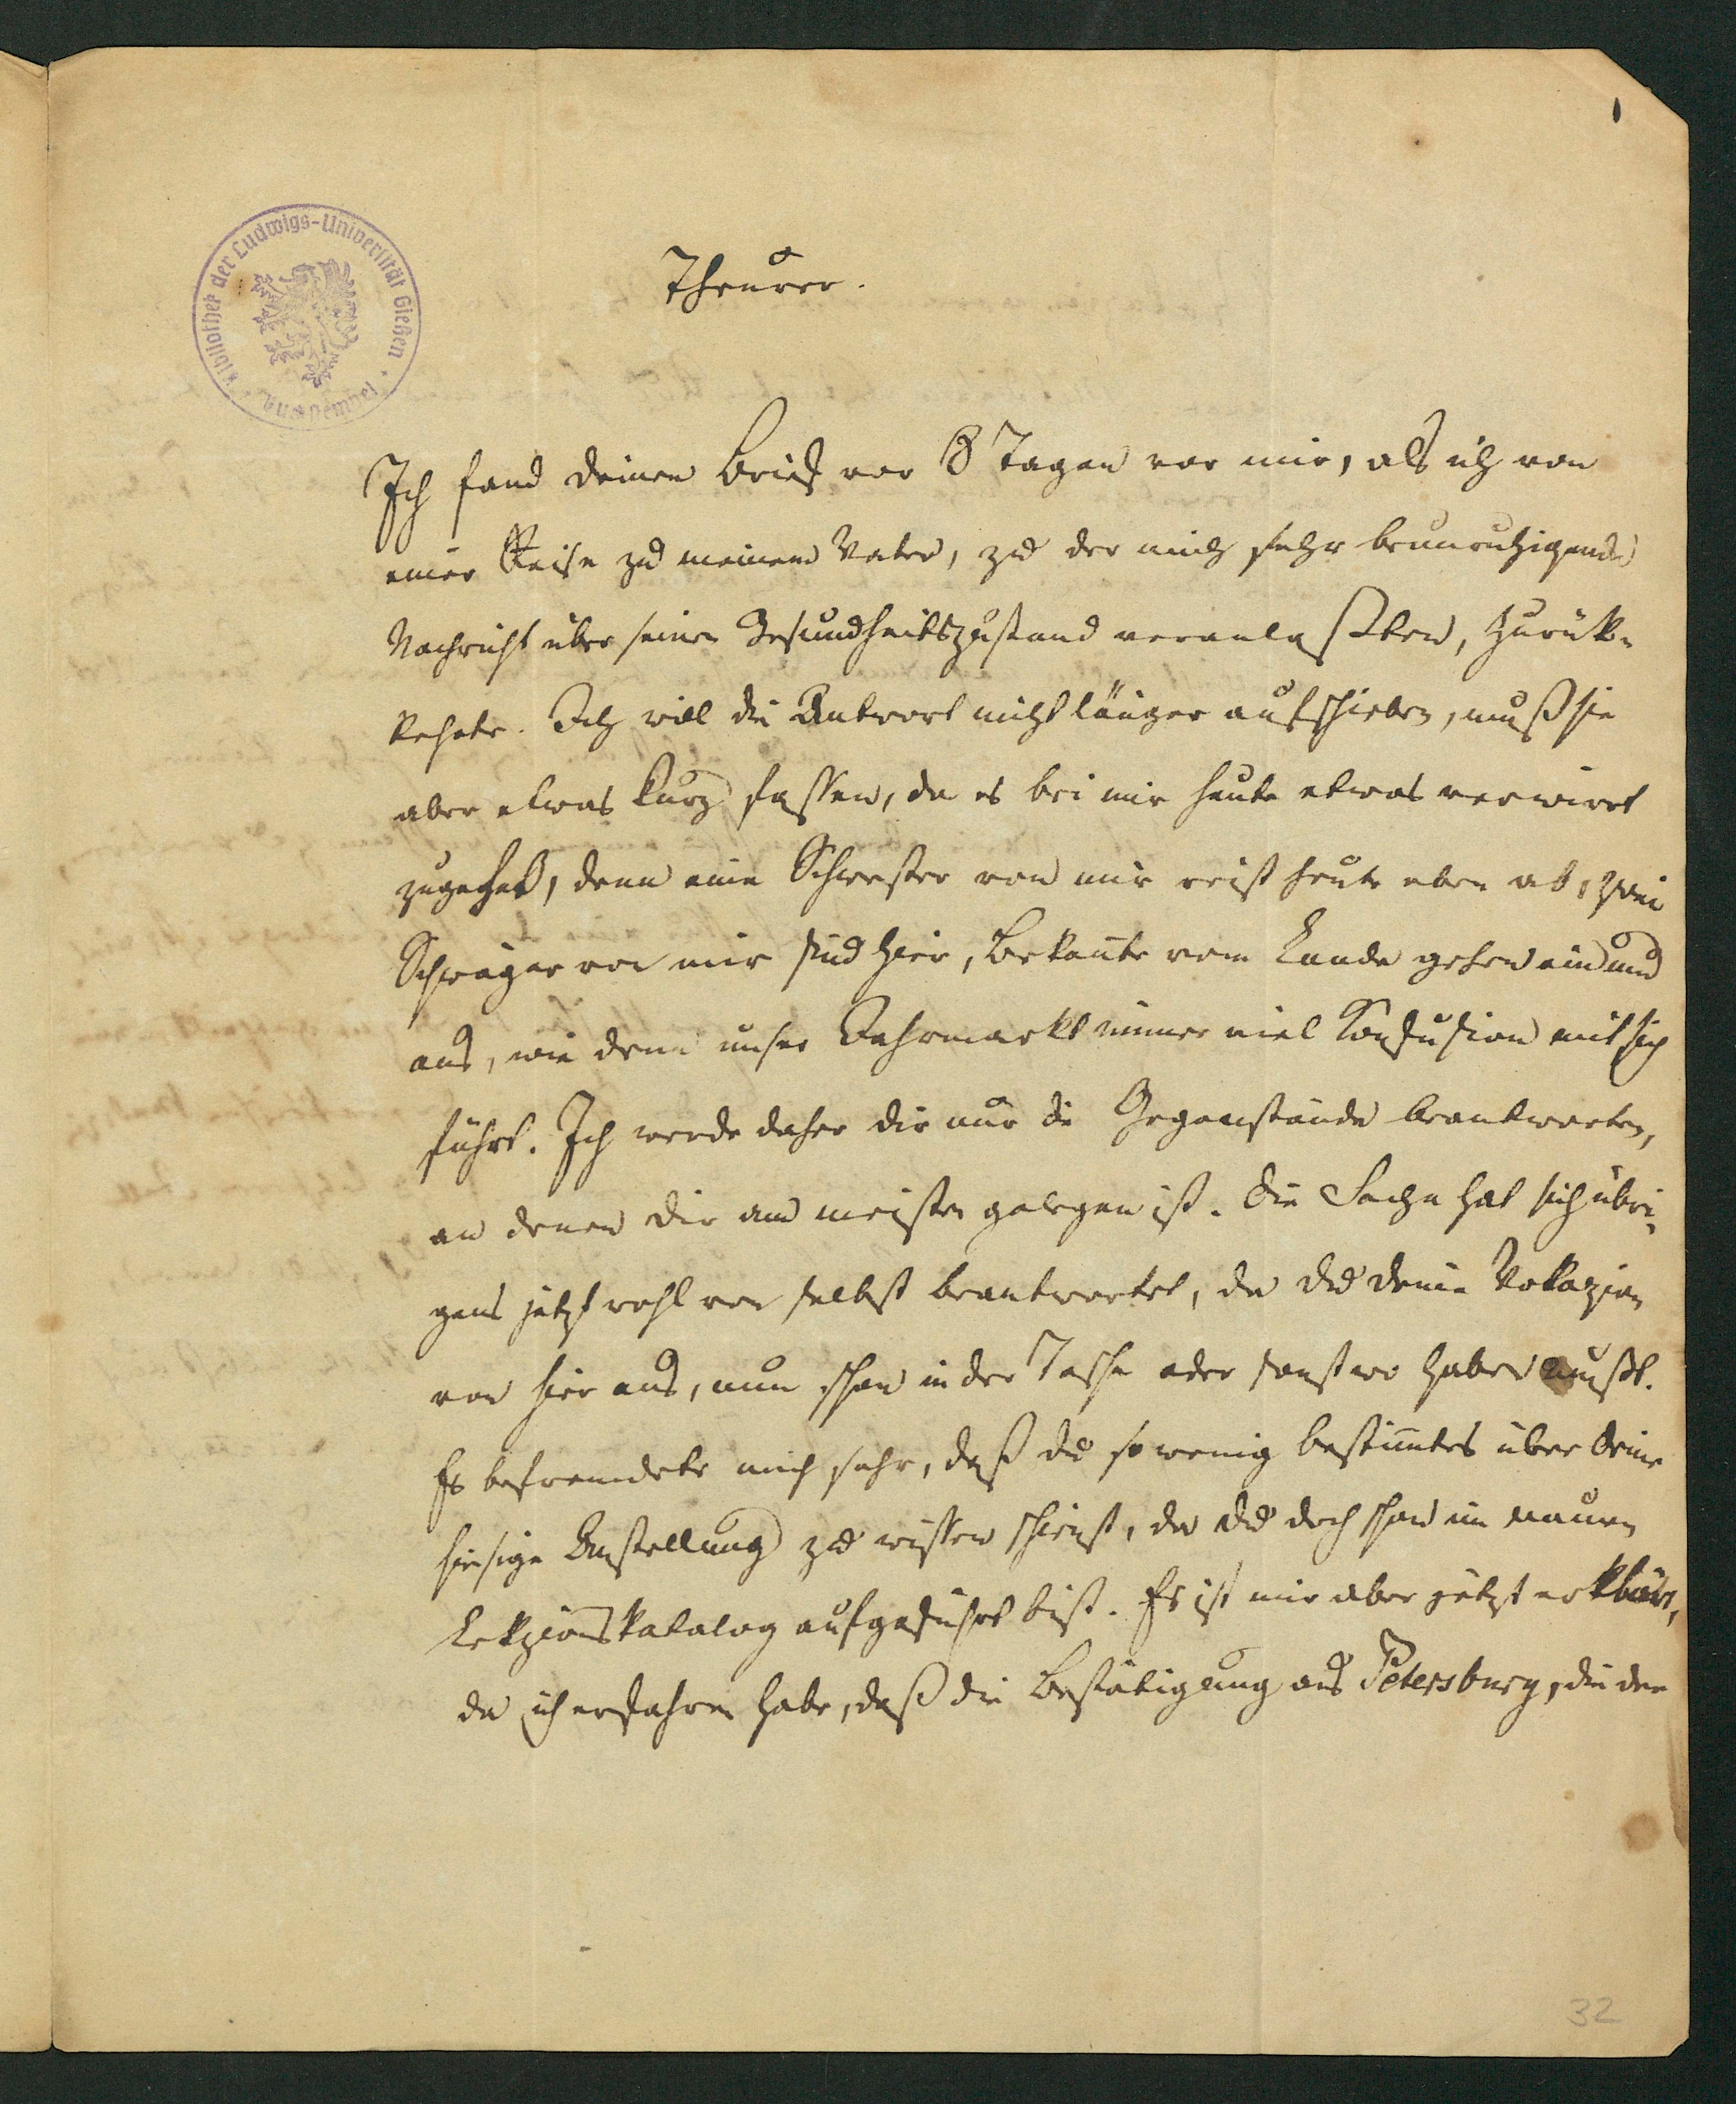 1
Bibliothek der Ludwigs-Universität Gießen
Theurer.
Ich fand deinen Brief vor 8 Tagen vor mir, als ich von
einer Reise zu meinem Vater, zu der mich sehr beunruhigende
Nachricht über seinen Gesundheitszustand veranlaßten, zurük-
kehrte. Ich will die Antwort nicht länger aufschieben, muß sie
aber etwas kurz fassen, da es bei mir heute etwas verwirrt
zugehet, denn eine Schwester von mir reist heute eben ab, zwei
Schwäger von mir sind hier, Bekannte vom Lande gehen ein und
aus, wie denn unser Jahrmarkt immer viel Konfusion mit sich
führt. Ich werde daher dir nur die Gegenstände beantworten,
an denen dir am meisten gelegen ist. Die Sache hat sich übri-
gens jetzt wohl von selbst beantwortet, da du deine Vokazion
von hier aus, nun schon in der Tasche oder sonst wo haben mußt.
Es befremdete mich sehr, daß du so wenig bestimtes über deine
hiesige Anstellung zu wissen schienst, da du doch schon im neuen
Lekzionskatalog aufgeführt bist. Es ist mir aber jetzt erklärt,
da ich erfahren habe, daß die Bestätigung aus Petersburg, die der
32